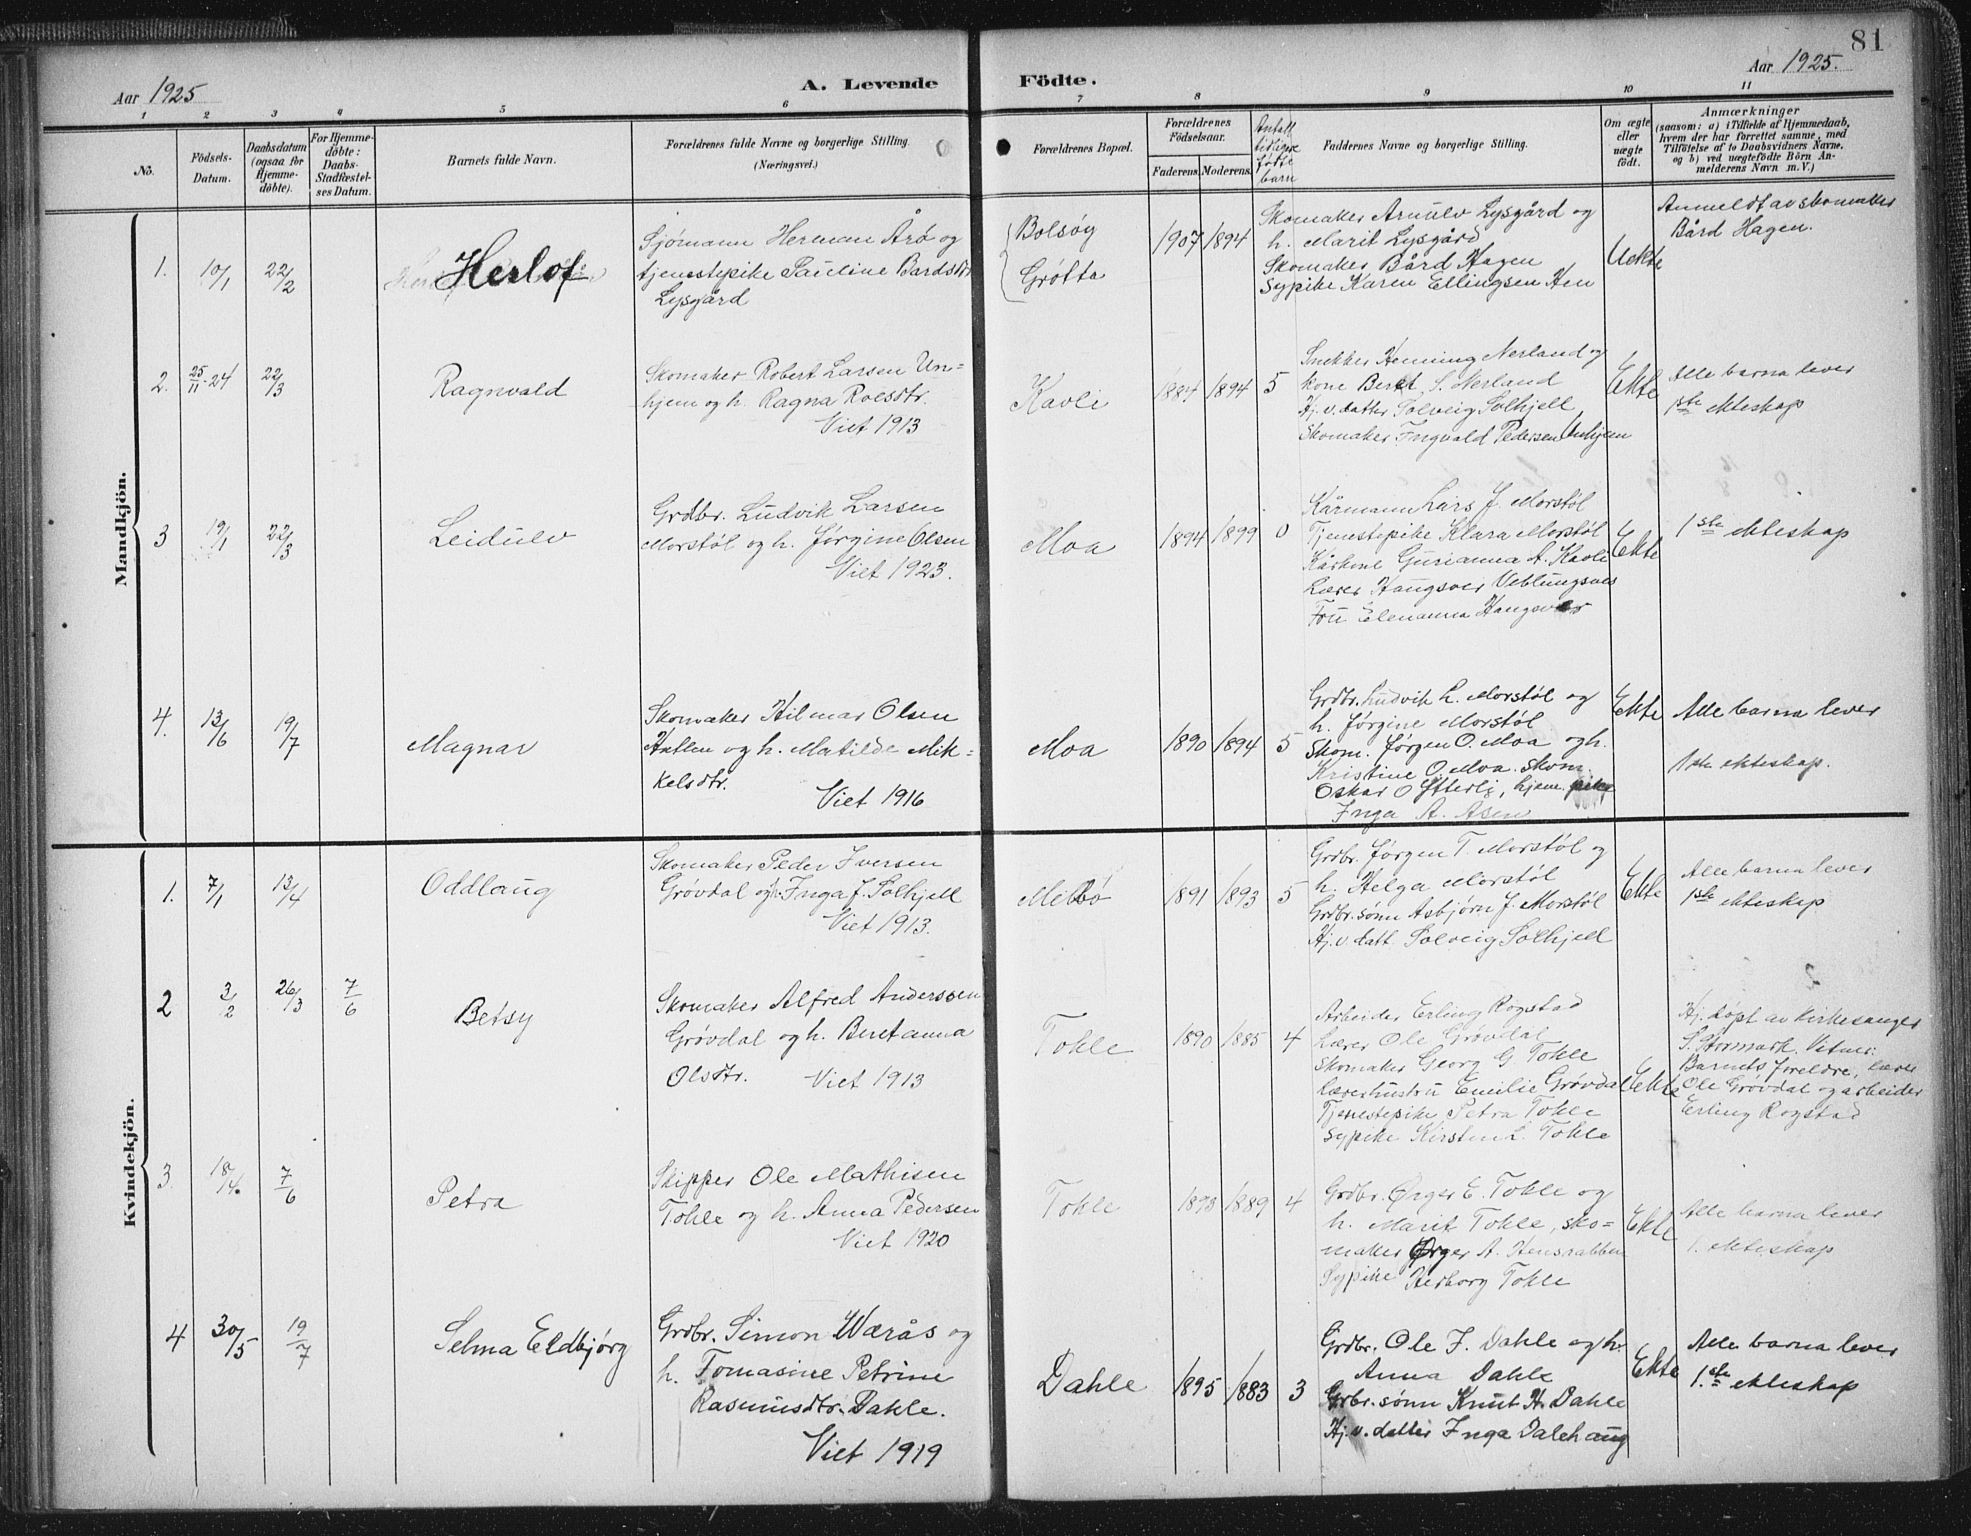 81
Aar 1925
A. Levende
Födte.
Aar 1925.
1 2 3 4 5 6 7 8 9 10 11
No.
Födsels-
Datum.
Daabsdatum
(ogsaa for
Hjemme-
döbte).
For Hjemme-
döbte:
Daabs-
Stadfæstel-
ses Datum.
Barnets fulde Navn.
Forældrenes fulde Navne og borgerlige Stilling.
(Næringsvei.)
Forældrenes Bopæl.
Forældrenes
Födselsaar.
Faderens.
Moderens.
Antall
tidligere
fødte
barn
Faddernes Navne og borgerlige Stilling.
Om ægte
eller
uægte
födt.
Anmærkninger
(saasom: a) i Tilfælde af Hjemmedaab,
hvem der har forrettet samme, med
Tilföielse af to Daabsvidners Navne.
og b) ved uægtefödte Börn An-
melderens Navn m. V.)
Mandkjön.
1.
10/1
22/2
Herlof
Sjømann Herman Årø og
tjenestepike Pauline Bardsdtr
Lysgård
Bolsøy
Grøtta
1907
1894
Skomaker Arnulv Lysgård og
h. Marit Lysgård
Skomaker Bård Hagen
Sypike Karen Ellingsen Hen
Uekte
Anmeldt av skomaker
Bård Hagen.
2.
25/11-24
22/3
Ragnvald
Skomaker Robert Larsen Un-
hjem og h. Ragna Roesdtr.
Viet 1913
Kavli
1884
1894
5
Snekker Henning Nerland og
kone Beret S. Nerland
Hj.v. datter Solveig Solhjell
Skomaker Ingvald Pedersen Unhjem
Ekte
Alle barna lever
1ste ekteskap
3
19/1
22/3
Leidulv
Grdbr. Ludvik Larsen
Morstøl og h. Jørgine Olsen
Viet 1923.
Moa
1894
1899
0
Kårmann Lars J. Morstøl
Tjenestepike Klara Morstøl
Kårkone Gurianna A. Kavli
Lærer Haugsvær Veblungsnes
Fru Elenanna Haugsvær
Ekte
1ste ekteskap
4.
13/6
19/7
Magnar
Skomaker Hilmar Olsen
Hatlen og h. Matilde Mik-
kelsdtr.
Viet 1916
Moa
1890
1894
5
Grdbr. Ludvik L. Morstøl og
h. Jørgine Morstøl
Skom. Jørgen O. Moa og h.
Kristine O. Moa. Skom.
Oskar O. Ytterli, hjem. pike
Inga A. Åsen
Ekte
Alle barna lever
1ste ekteskap.
Kvindekjön.
1.
7/1
13/4
Oddlaug
Skomaker Peder Iversen
Grøvdal og h. Inga J. Solhjell
Viet 1913.
Melbø
1891
1893
5
Grdbr. Jørgen T. Morstøl og
h. Helga Morstøl
Grdbr. sønn Asbjørn J. Morstøl
Hj.v. datt. Solveig Solhjell
Ekte
Alle barna lever
1ste ekteskap
2
3/2
26/3
7/6
Betsy
Skomaker Alfred Anderssen
Grøvdal og h. Beret anna
Olsdtr. Viet 1913
Tokle
1890
1885
4
Arbeider Erling Rogstad
Lærer Ole Grøvdal
Skomaker Georg G Tokle
Lærerhustru Emilie Grøvdal
Tjenestepike Petra Tokle
Sypike Kirsten L. Tokle
Ekte
Hj. døpt av kirkesanger
S. Stormark. Vitner:
Barnets foreldre, lærer
Ole Grøvdal og arbeider
Erling Rogstad
3.
18/4.
7/6
Petra
Skipper Ole Mathisen
Tokle og h. Anna Pedersen
Viet 1920
Tokle
1893
1889
4
Grdbr. Ørger E. Tokle og
h. Marit Tokle, sko-
maker Ørger A. Hensrabben
Sypike Herborg Tokle
Ekte
Alle barna lever
1. ekteskap
4
30/5
19/7
Selma Eldbjørg
Grdbr. Simon Wærås og
h. Tomasine Petrine
Rasmusdtr. Dahle.
Viet 1919
Dahle
1895
1883
3
Grdbr. Ole J. Dahle og h.
Anna Dahle
Grdbr. sønn Knut H. Dahle
Hj.v. datter Inga Dalehaug
Ekte
Alle barna lever
1.ste ekteskap